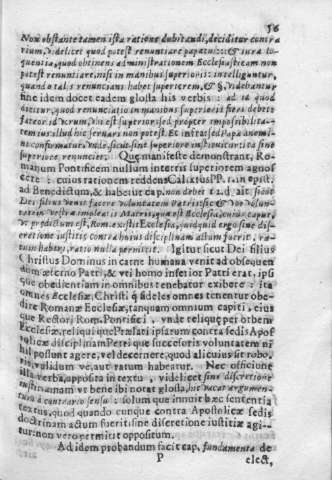 56
Non obstante tamen ista ratione dubitandi, deciditur contra
rium, videlicet quod potest renuntiare papatui: & iura lo-
quentia, quod obtinens administrationem Ecclesiasticam non
potest renuntiare, nisi in manibus superioris: intelliguntur,
quando talis renuncians habet superiorem, & §, videbantur
fine idem docet eadem glossa his verbis: ad id quod
dicitur, quod renunciatio in manibus superioris fieri debet:
fateor id verum, ubi est superior, sed propter impossibilita-
tem ius illud hic servari non potest. Et infra: sed Papa anomi-
nis confirmatur, unde sicut sine superiore instituitur ita sine
superiore renunciet. Que manifeste demonstrant, Ro-
manum Pontificem nullum interris superiorem agnos
cere: cuius rationem reddens Calixtus PP. 1. in epist:
ad Benedictum, & habetur cap. non debet 12. d. ait sicut
Dei filius venit facere voluntatem Patris sic & vos volun-
tatem vestræ impleatis Matris, quæ est Ecclesia, cuius caput,
ut prædictum est, Romæ existit Ecclesia, quidquid ergo sine dis-
cretione iustitiæ contra huius disciplinam actum fuerit, ra-
tum haberi, ratio nulla permittit. Igitur sicut Dei filius
Christus Dominus in carne humana venit ad obsequen
dom æterno Patri, & uti homo inferior Patri erat, ipsi
que obedientiam in omnibus tenebatur exibere: ita
omnes Ecclesiæ, Christi, & fideles omnes tenentur obe-
dire Romanæ Ecclesiæ, tanquam omnium capiti, eius
que Rectori, Rom. Pontifici, unde relique per orbem
Ecclesiæ, reliqui que Prælati ipsarum contra sedis Apos
tolicæ disciplinam Petri que succesoris voluntatem ni
hil possunt agere, vel decernere, quod alicuius sit robo
ris, validum ve, aut ratum habeatur. Nec officiunt
illa verba, apposita in textu, videlicet sine discretione
iustitiæ, nam ut bene ibi notat glossa, hic vacat argumen-
tum à contrario sensu: solum que innuit hæc sententia
textus, quod quando cunque contra Apostolicæ sedis
doctrinam actum fuerit sine discretione iustitiæ agi-
tur: non vero permitut oppositum.
Ad idem probandum facit cap. fundamenta de
P elect,